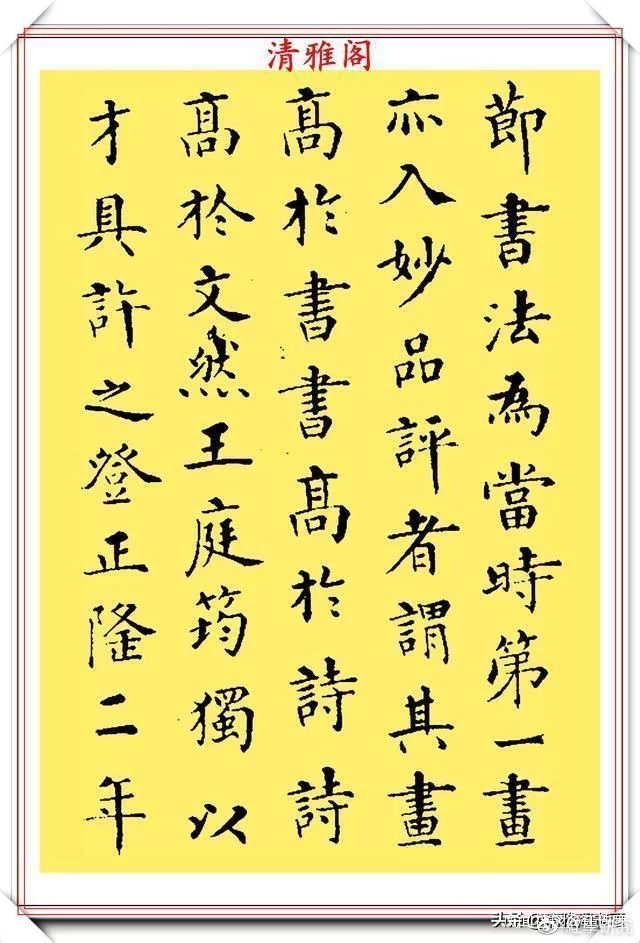 清雅阁
節書法為當時第一畫
亦入妙品評者謂其畫
高於書書高於詩詩
高於文然王庭筠獨以
才具許之登正隆二年